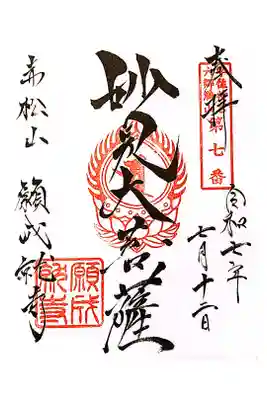 奉拝
第七番
令和七年
七月十二日
妙見大菩薩
赤松山 願成就寺
願成就寺